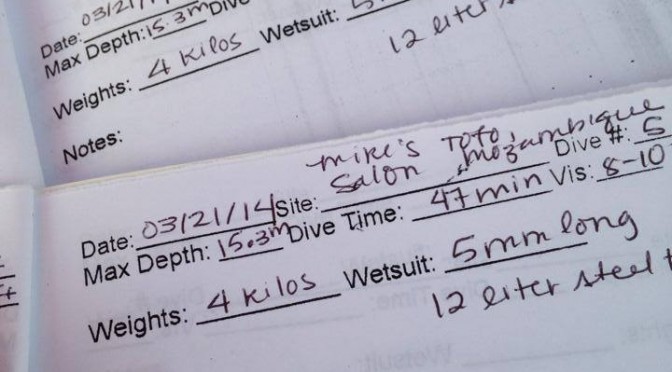 Date: 03/21/1
Max Depth: 15.3m Dive
Weights: 4 Kilos Wetsuit: 5
12 liter s
Notes:
mike's Tofo,
Salon mozambique
Date: 03/21/14 Site: Dive #: 5
Max Depth: 15.3m Dive Time: 47 min Vis: 8-10
Weights: 4 Kilos Wetsuit: 5mm long
12 liter steel t